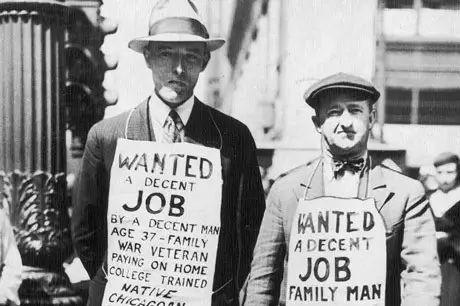 WANTED
A DECENT
JOB
BY A DECENT MAN
AGE 37-FAMILY
WAR VETERAN
PAYING ON HOME
COLLEGE TRAINED
NATIVE
CHICAGOAN
WANTED
A DECENT
JOB
FAMILY MAN